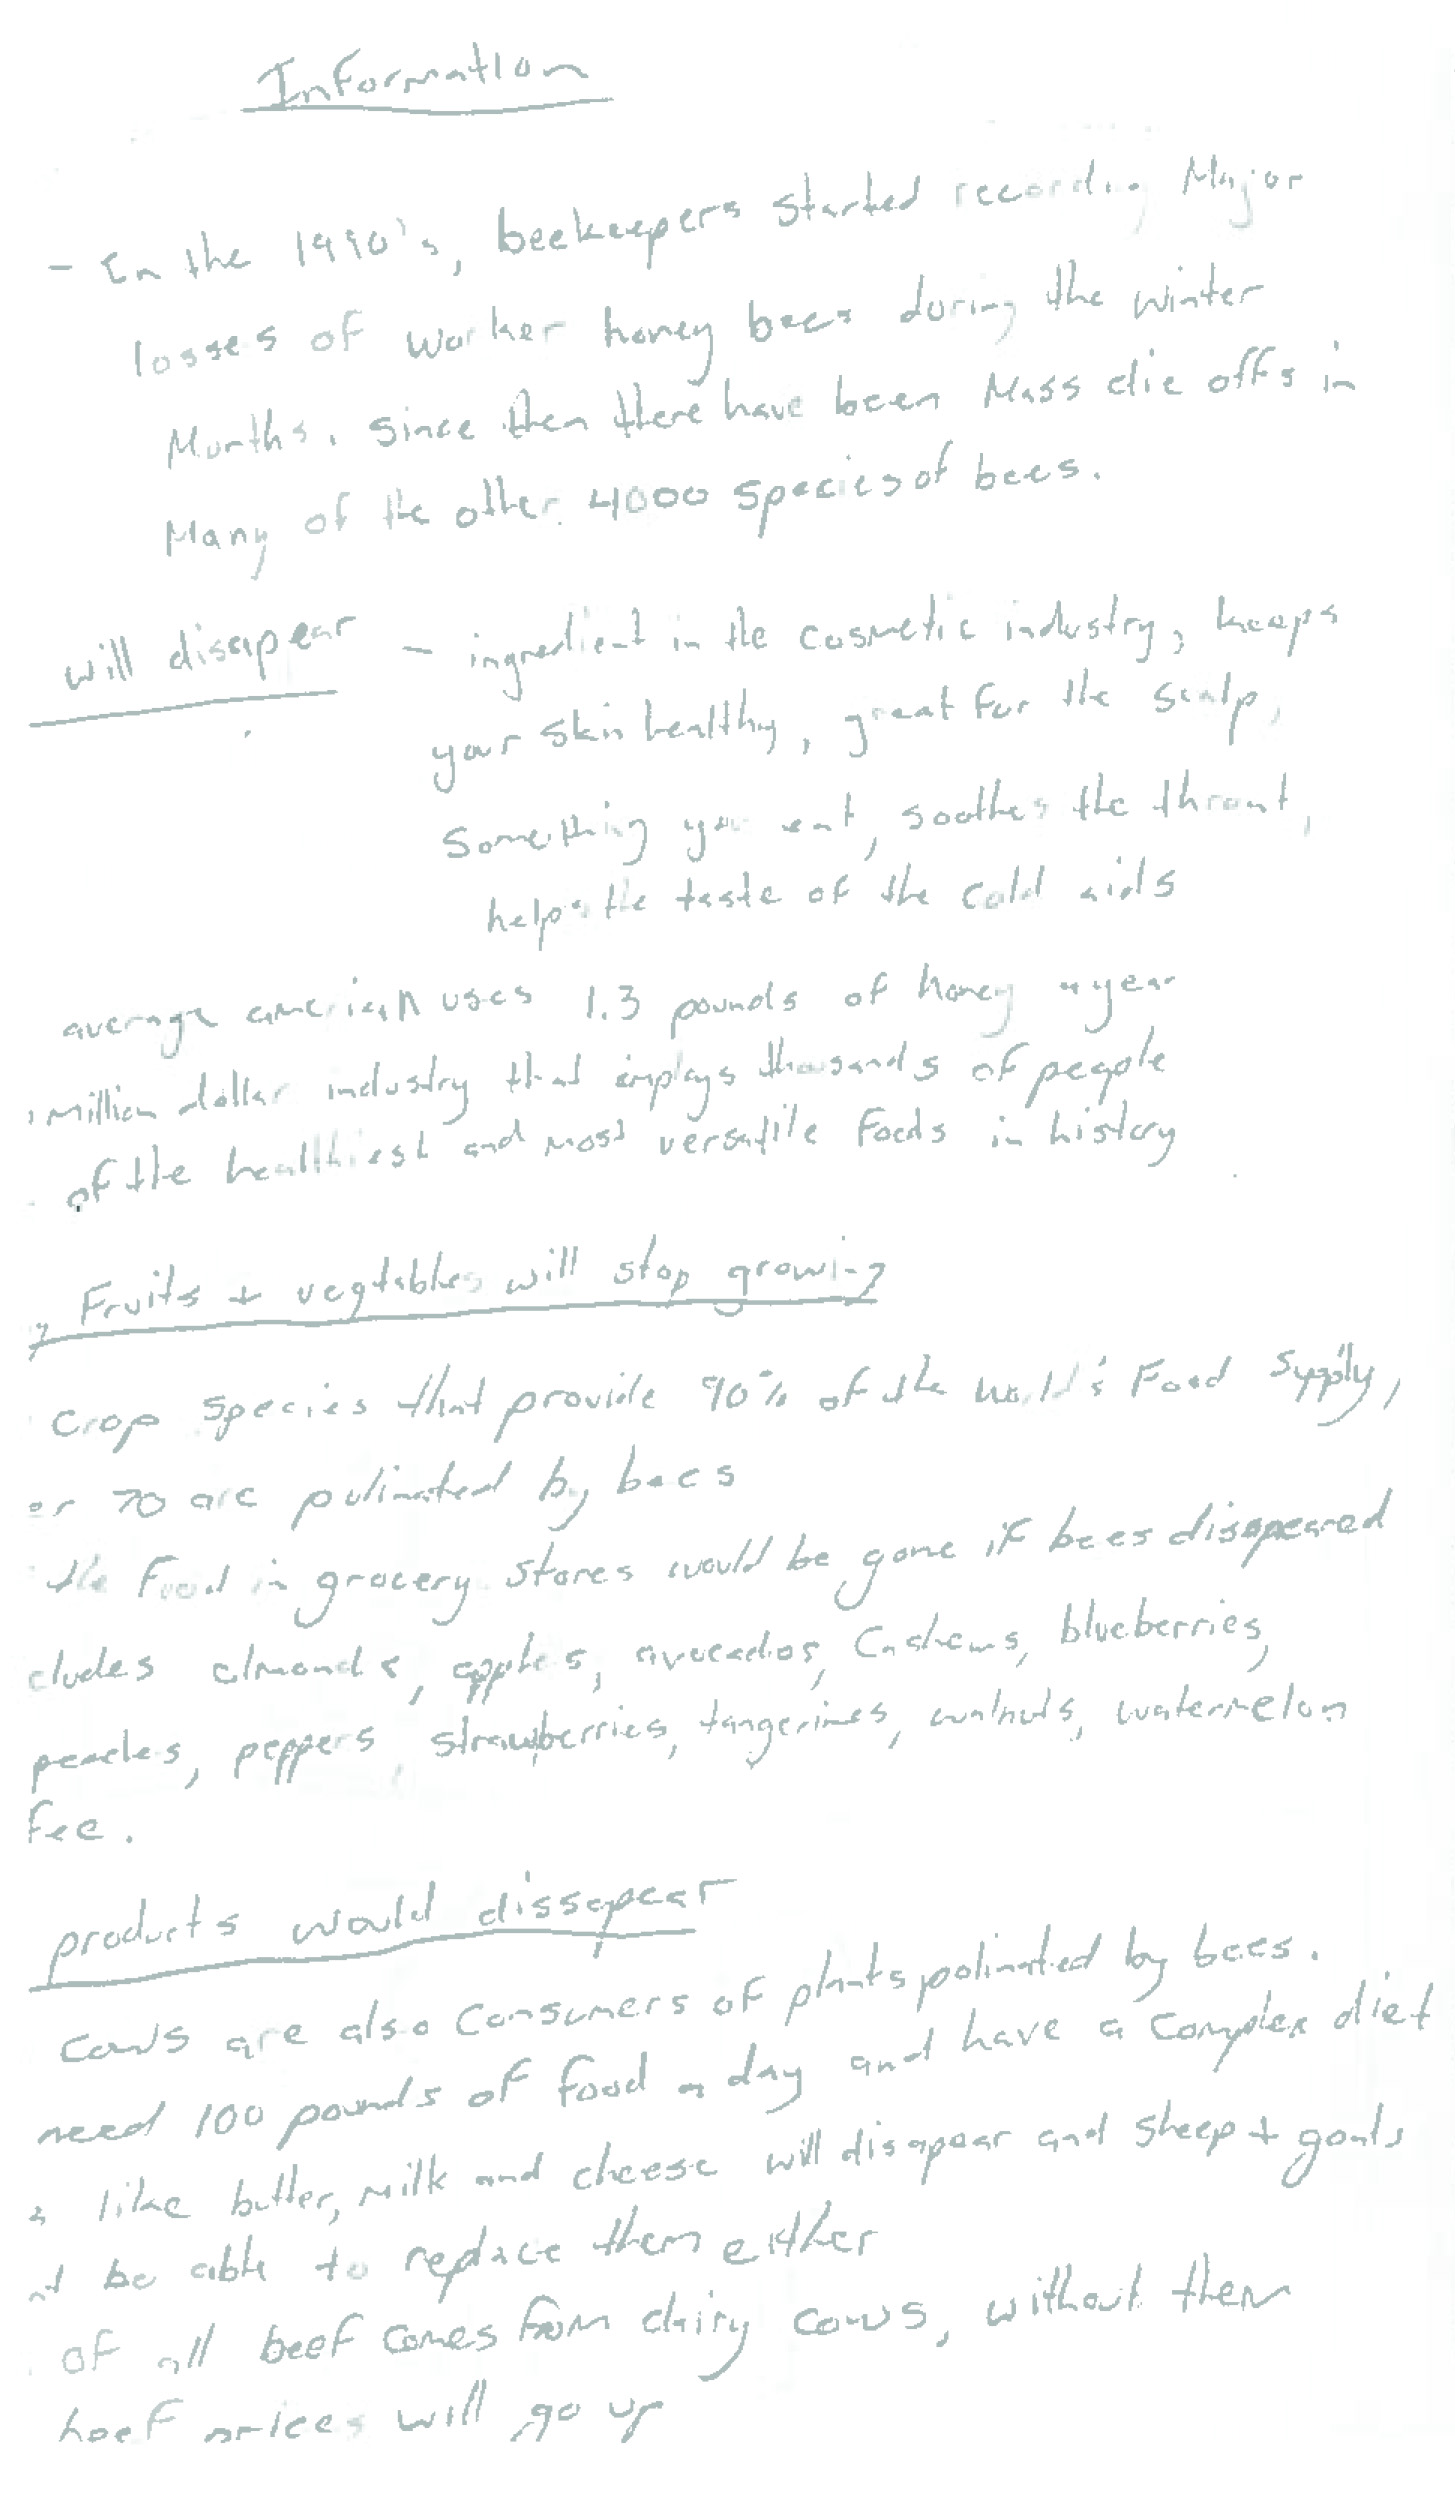 Information
- In the 1990's, beekeepers started recording Major
losses of worker honey bees during the winter
Months. since then there have been Mass die offs in
Many of the other 4000 species of bees.
will dissapear - ingredient in the cosmetic industry, keeps
your skin healthy, great for the scalp,
Something you eat, soothes the throat,
helps the taste of the cold aids
average american uses 1.3 pounds of honey a year
Million dollar industry that employs thousands of people
of the healthiest and most versatile foods in history
Fruits + vegtables will stop growing
Crop species that provide 90% of the world's Food Supply,
70 are polinated by bees
the food in grocery stores would be gone if bees disapeared
cludes almonds, apples, avocados, Cashews, blueberries,
peaches, peppers, strawberries, tangerines, walnuts, watermelon
fee.
products would dissapear
cows are also Consumers of plants polinated by bees.
need 100 pounds of food a day and have a complex diet
like butter, milk and cheese will disapear and sheep + goats
be able to replace them either
of all beef comes from dairy cows, without them
beef prices will go up